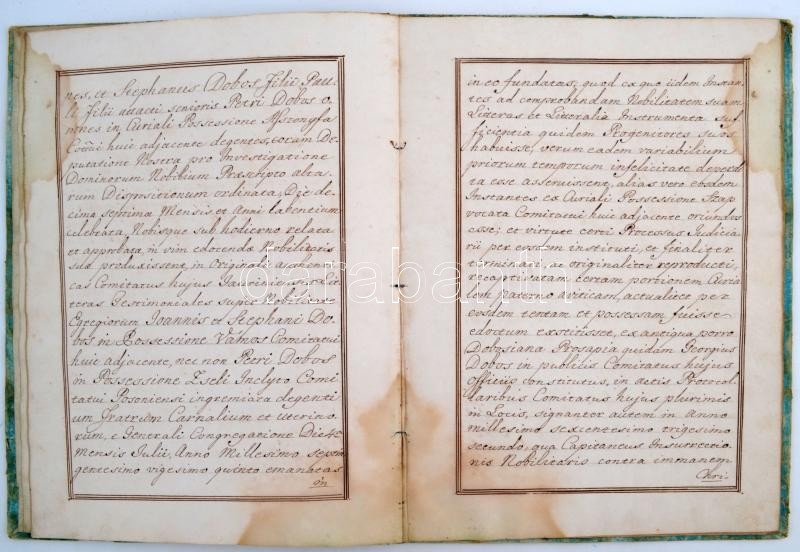 nes, et Stephanus Dobos Filii Pau-
li Filii attacti senioris Petri Dobos o-
mnes in Curiali Possessione
huic adjacente degentes, coram De-
putatione Nostra pro Investigatione
Dominorum Nobilium Præscripto alta-
rum Dispositionum ordinata, Die de-
cima septima Mensis et Anni labentium
celebrata, Nobisque sub hodierno relata
et approbata, in vim edocendæ Nobilitatis
suæ produxissent, in Originali
Comitatus hujus Jaurinensis Lit-
teras Testimoniales super Nobilitate
Egregiorum Joannis et Stephani Do-
bos in Possessione Vamos Comitatui
huic adjacente, nec non Petri Dobos
in Possessione Zseli Inclyto Comi-
tatui Posoniensi ingremiata degenti-
um Fratrum Carnalium et Uterino-
rum, e Generali Congregatione Die
Mensis Julii, Anno Millesimo Septin-
gentesimo vigesimo quinto emanatas
in
in eo fundatas, quod ex quo iidem Instan-
tes ad comprobandam Nobilitatem suam
Literas et Litteralia Instrumenta suf-
ficientia quidem Progenitores suos
habuisse, verum eadem variabilium
priorum temporum infelicitate deperdi-
ta esse asseruissent, alias vero eosdem
Instantes ex Curiali Possessione Szap
vocata Comitatui huic adjacente oriundos
esse; et virtute certi Processus Judicia-
rii per eosdem instituti, et finaliter
terminati, ac originaliter reproducti,
recaptivatam certam portionem Curia-
lem Paterno Aviticam, actualiter per
eosdem tentam et possessam fuisse
edoctum exstitisset, ex antiqua porro
Dobosiana Prosapia quidam Georgius
Dobos in publicis Comitatus hujus
officiis constitutus, in actis Protocol-
laribus Comitatus hujus plurimis
in Locis, signanter autem in Anno
millesimo sexcentesimo trigesimo
secundo, qua Capitaneus Insurrectio-
nis Nobilitaris contra immanem
Chri-
darabanth